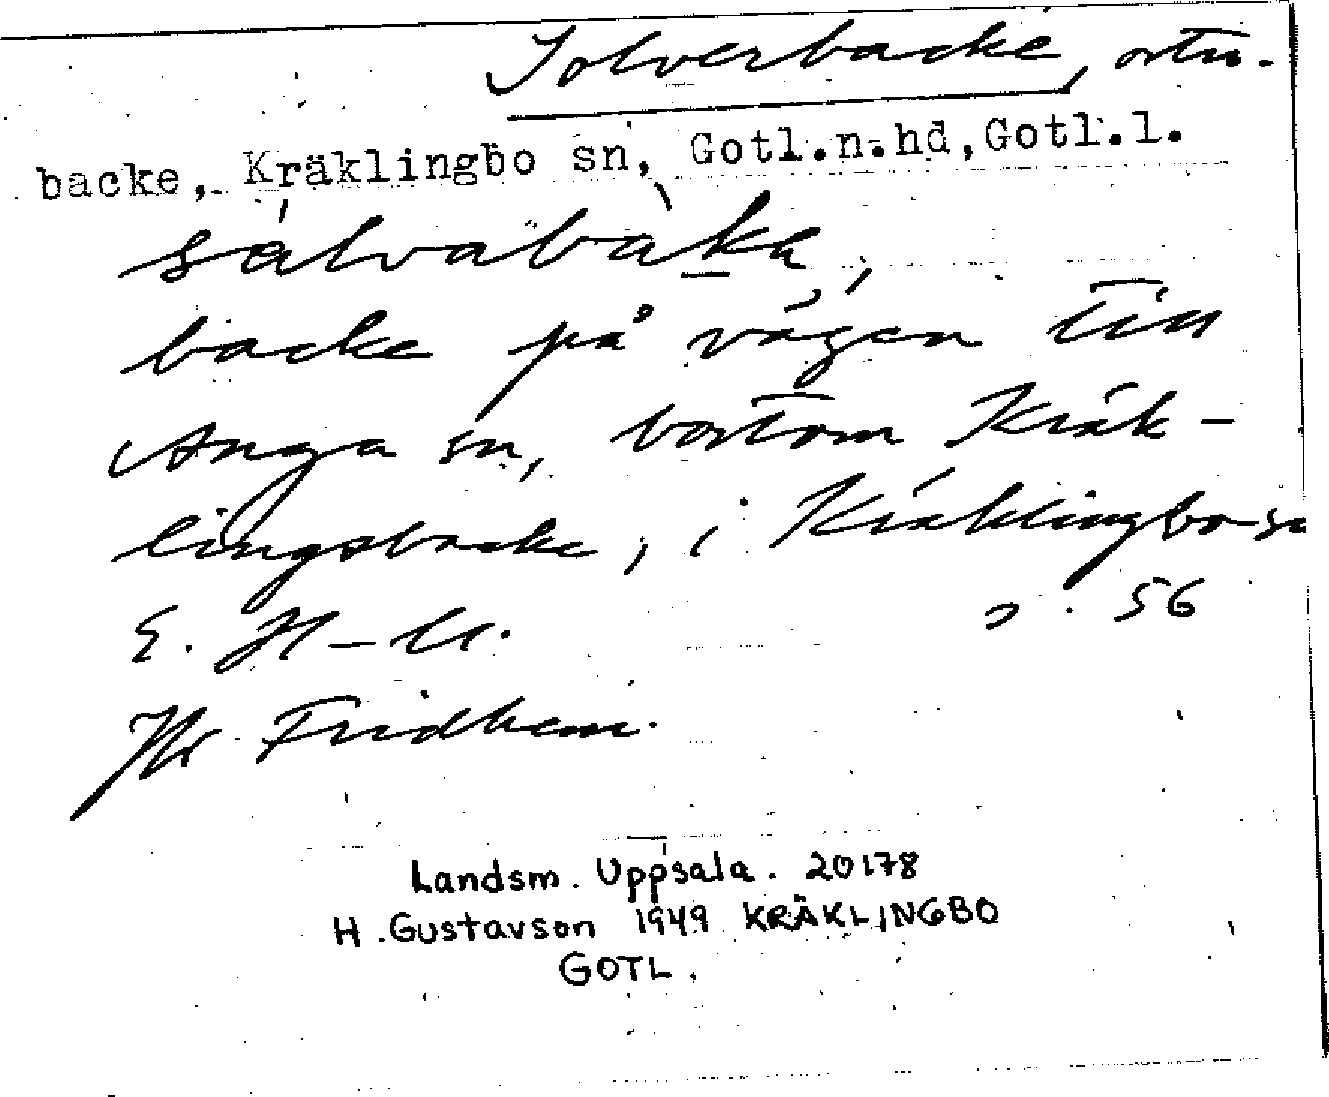 Solverbacke, ortn.
backe, Kräklingbo sn, Gotl.n.hd, Gotl.l.
sálvabàka,
backe på vägen till
Anga sn, bortom Kräk-
lingsbacke, i Kräklingbo sn
E. H-M. s. 56
Fridhem.
Landsm. Uppsala. 20178
H. Gustavson 1949 KRÄKLINGBO
GOTL.